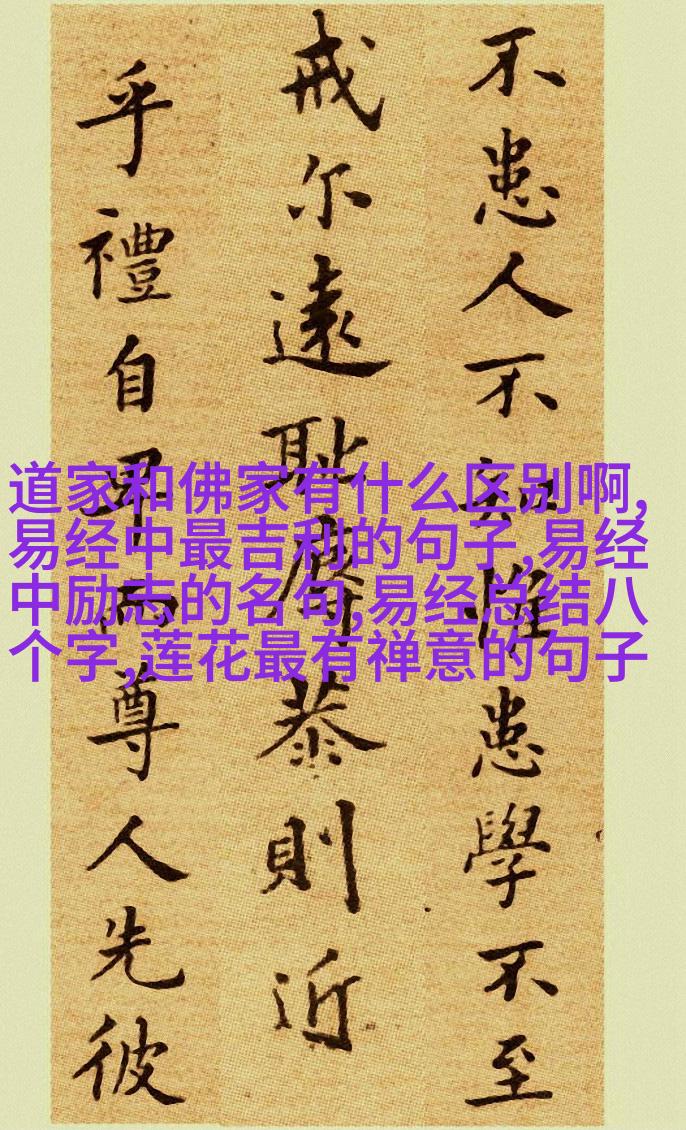 不患人不知惟患學不至
戒尔遠耻辱恭則近
乎禮自卑而尊人先彼
道家和佛家有什么区别啊,
易经中最吉利的句子,易经
中励志的名句,易经总结八
个字,莲花最有禅意的句子